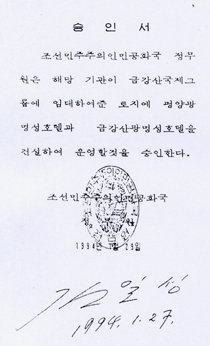 승인서
조선민주주의인민공화국 정무
원은 해당 기관이 금강산국제그
룹에 임대하여준 토지에 평양광
명성호텔과 금강산광명성호텔을
건설하여 운영할것을 승인한다.
조선민주주의인민공화국
정무원
1994년 1월 29일
김일성
1994. 1. 27.